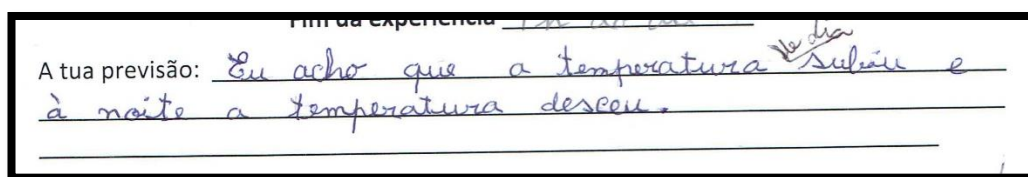 Fim da experiência
A tua previsão: Eu acho que a temperatura de dia subiu e
à noite a temperatura desceu.